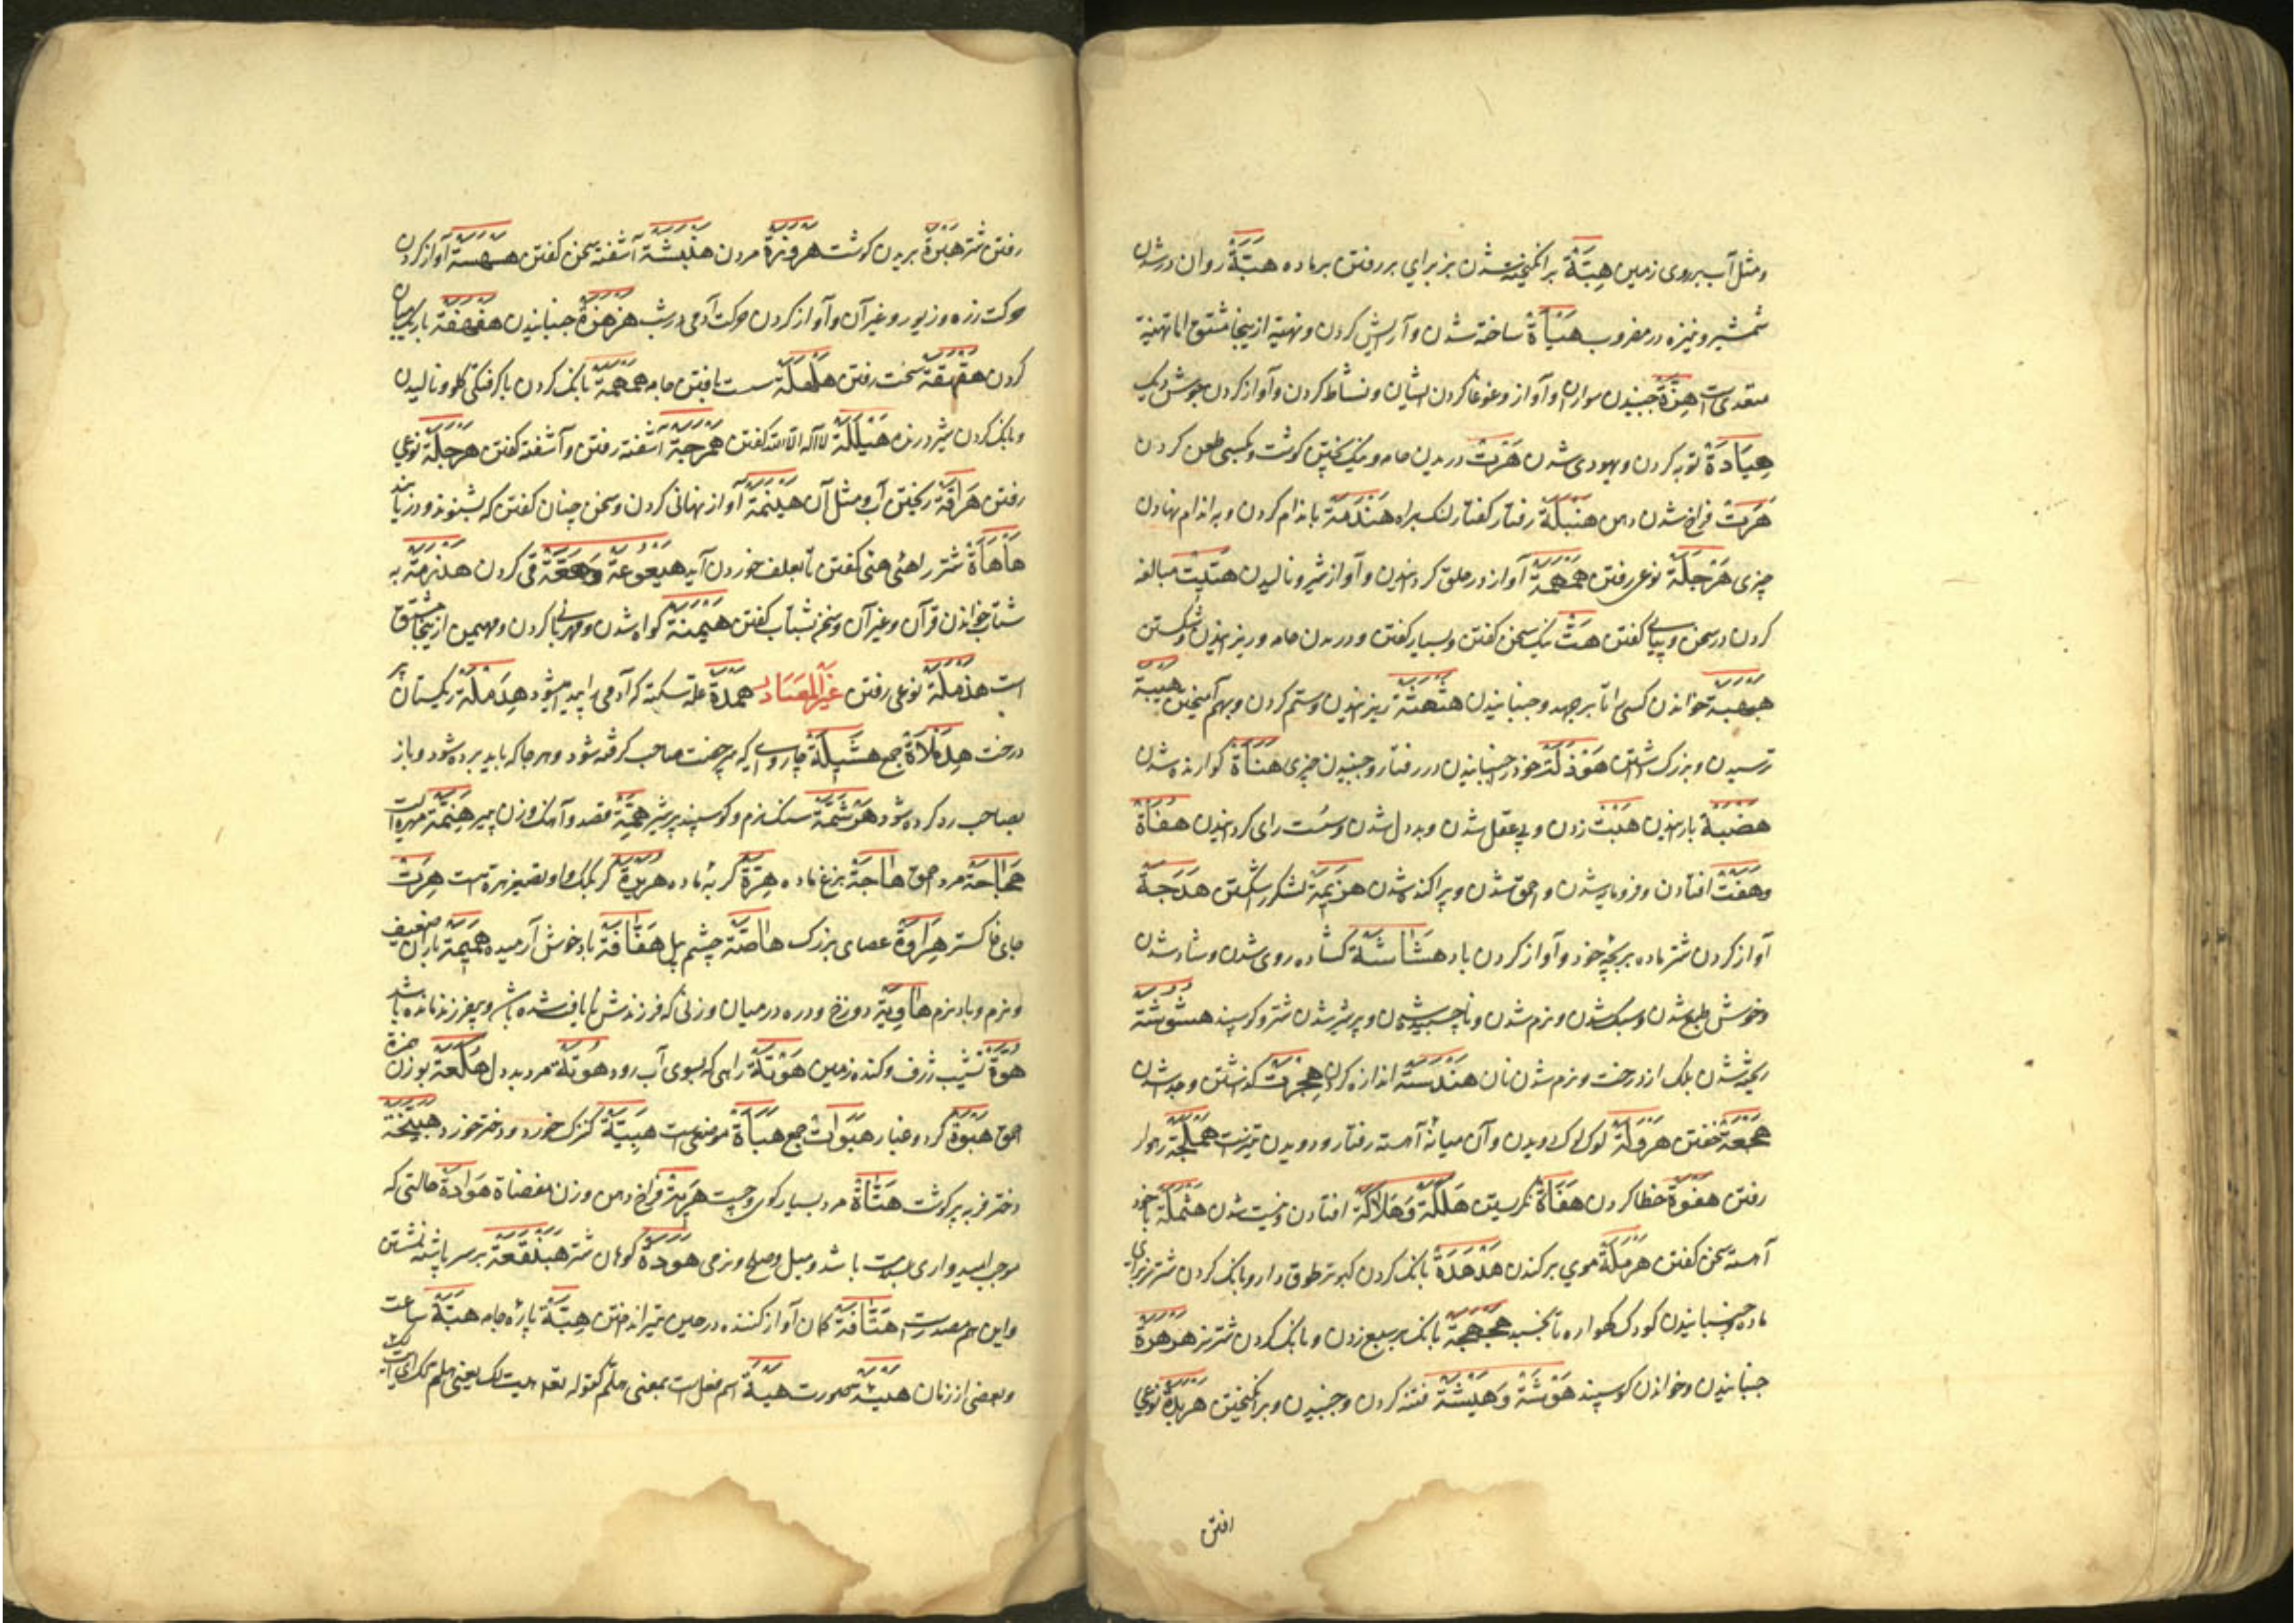 ومثل آب بر روی زمین هِبَّة برانکیخته شدن بز برای بر رفتن بر ماده هبَّة روان در شدن
شمشیر و نیزه در مضروب هَیْأَة ساخته شدن و آرایش کردن و تهنیة ازینجا مشتق اما تهنیة
متعدی است هِزَّة جنبیدن سواران و آواز و غوغا کردن ایشان و نشاط کردن و آواز کردن جوش دیک
هِیَادَة توبه کردن و یهودی شدن هَرْت دریدن جامه و نیک پختن کوشت و کسی طعن کردن
هَرَت فراخ شدن دهن هَنْبَلَة رفتار کفتار لنک براه هَنْدَمَة باندام کردن و براندام نهادن
چیزی هَرْجَلَة نوعی رفتن هَمْهَمَة آواز در حلق کردانیدن و آواز شیر و نالیدن مبالغه
کردن در سخن و پیاپی کفتن هَتّ نیک سخن کفتن و بسیار کفتن و دریدن جامه و ریزانیدن و شکستن
هَبْهَبَة خواندن کسی را تا برجهد و جنبانیدن هَثْهَثَة ریزانیدن و ستم کردن و بهم آمیختن هَیْبَة
ترسیدن و بزرک داشتن هَوْذَلَة خود را جنبانیدن در رفتار و جنبیدن چیزی هَنَاءَة کوارنده شدن
هَضْبَة بارانیدن هَبْت زدن و بی عقل شدن و بددل شدن و سست رای کردانیدن هَفَاة
وهَفْت افتادن و فرومایه شدن و احمق شدن و پراکنده شدن هَزِیمَة لشکر شکستن هَدَجَة
آواز کردن شتر ماده بر بچه خود و آواز کردن باد هَشَاشَة کشاده روی شدن و شاد شدن
و خوش طبع شدن و سبک شدن و نرم شدن و پر شیر شدن شتر و کوسپند هُشُوشَة
ریخته شدن برک از درخت و نرم شدن نان هَنْدَسَة اندازه کردن هِجْرَت کذاشتن و جدا شدن
هَجْعَة خفتن هَرْوَلَة دویدن و آن میانهٔ آهسته رفتار و دویدن تیز است هَمْلَجَة رهوار
رفتن هَفْوَة خطا کردن هَلَکَة وَ هَلَاکَة افتادن و نیست شدن هَتْمَلَة باخود
آهسته سخن کفتن هَرْمَلَة موی برکندن هَدْهَدَة بانک کردن کبوتر طوق دار و بانک کردن شتر نر برای
ماده و جنبانیدن کودک کهواره تا بخسبد هَجْهَجَة بانک بر سبع زدن و بانک کردن شتر نر هَرْهَرَة
جنبانیدن و خواندن کوسپند هَوْشَة وَ هَیْشَة فتنه کردن و جنبیدن و برانکیختن هَرْبَذَة نوعی
افتن
رفتن شتر هَبْرَة بریدن کوشت هَرْوَزَة مردن هَنْبَشَة آشفته سخن کفتن هَسْهَسَة آواز کردن
حرکت زره و زیور و غیر آن و آواز کردن حرکت آدمی در شب هَزْهَزَة جنبانیدن هَفْهَفَة باریک میان
کردن هَقْهَقَة سخت رفتن هَلْهَلَة سست بافتن جامه هَمْهَمَة بانک کردن با کرفتکی کلو و نالیدن
و بانک کردن شیر درنده هَیْلَلَة لا اله الا الله کفتن هَمْرَجَة آشفته رفتن و آشفته کفتن هَرْجَلَة نوعی
رفتن هَرَاقَة ریختن آب و مثل آن هَیْنَمَة آواز نهانی کردن و سخن چنان کفتن که بشنوند و در نیابند
هَأْهَأَة شتر را هئی هئی کفتن تا بعلف خوردن آید هَیْعُوعَة وَ هَعَّة قی کردن هَذْرَمَة به
شتاب خواندن قرآن و غیر آن و سخن بشتاب کفتن هَیْمَنَة کواه شدن و مهربانی کردن و مهیمن ازینجا مشتق
است هَذْمَلَة نوعی رفتن غیر المصادر هَمْدَة علت سکته که آدمی را پیدا میشود هِدَمْلَة ریکستان پر
درخت هِدَمْلَاة جمع هَشِیلَة چاروایی که بی رخصت صاحب کرفته شود و هر جا که باید برده شود و باز
بصاحب رد کرده شود هَوْشَمَة سنک نرم و کوسپند پر شیر هِمَّة قصد و آهنک و زن پیر هِنَّمَة مهره است
هَجَاجَة مرد احمق هَاجَة بزغ ماده هِرَّة کربهٔ ماده هُرَیْرَة کربک ماده و تصغیر هره است هِرَت
جای خاکستر هِرَاوَة عصای بزرک هَاصَّة چشم پیل هَفَّافَة باد خوش آرمیده هَمِیمَة باران ضعیف
و نرم و باد نرم هَاوِیَة دوزخ و دره در میان و زنی که فرزندش نایافت شده باشد و بی فرزند مانده باشد
هُوَّة نشیب ژرف و کنده زمین هَوْتَة راهی که بسوی آب رود هُوتَة مرد بددل هُلَعَة بوزن همزه
احمق هَبْوَة کرد و غبار هَبَوَات جمع هَبَاءَة موضعی است هَبَیَّة کنزک خورد و دختر خورد هَبَیَّخَة
دختر فربه پر کوشت هَتَّاة مرد بسیار کوی وچست هَرِیَت فراخ دهن و زن مفضاة هَوَادَة حالتی که
موجب امیدواری بسلامت باشد و میل و صلح و نرمی هَوْدَة کوهان شتر هَبَنْقَعَة بر سر پاشنه نشستن
و این هم مصدر است هَتَّافَة کمان آواز کننده در حین تیر انداختن هِبَّة پارهٔ جامه هَبَّة ساعت
و بعضی از زمان هَیْئَة صورت هَیْة اسم فعل است بمعنی هلم کقوله تعالی هیت لک یعنی هلم لک ای